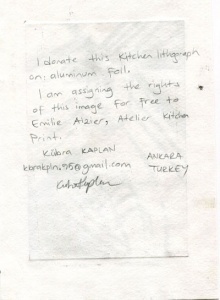 I donate this Kitchen lithograph
on, aluminum Foil.
I am assigning the rights
of this image For Free to
Emilie Aizier, Atelier Kitchen
Print.
Kübra KAPLAN
kbrakpln.95@gmail.com
ANKARA
TURKEY
Kübra Kaplan